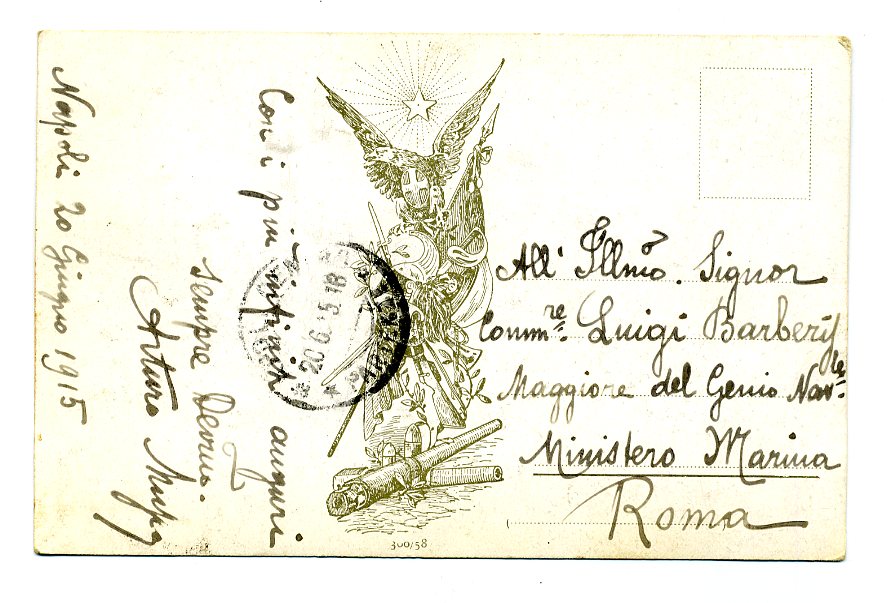 Napoli 20 Giugno 1915
Con i più infiniti auguri
sempre Devmo.
Arturo
All' Illmo. Signor
Comm.re Luigi Barberis
Maggiore del Genio Nav.le
Ministero Marina
Roma
20.6.15.18
300/58